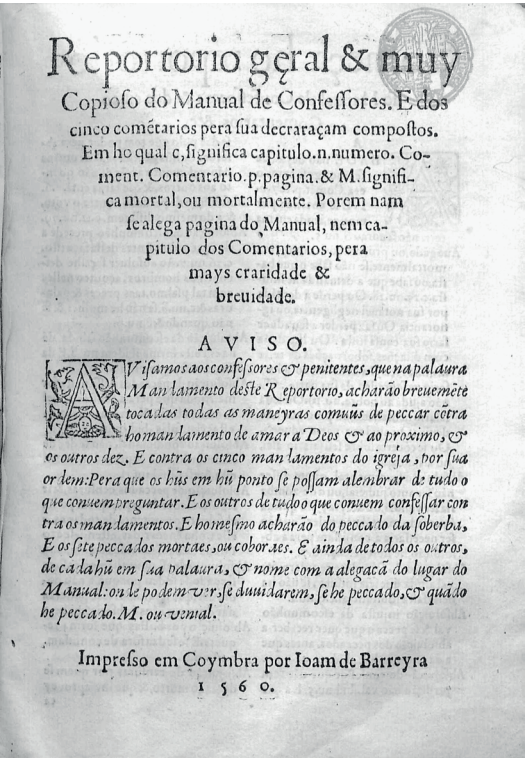 Reportorio gęral & muy
Copioſo do Manual de Confeſſores. E dos
cinco comẽtarios pera ſua decraraçam compoſtos.
Em ho qual c, ſignifica capitulo. n. numero. Co-
ment. Comentario. p. pagina. & M. ſignifi-
ca mortal, ou mortalmente. Porem nam
ſe alega pagina do Manual, nem ca-
pitulo dos Comentarios, pera
mays craridade &
breuidade.
AVISO.
AViſamos aos confeſſores & penitentes, que na palaura
Mandamento deſte Reportorio, acharão breuemẽte
tocadas todas as maneyras comuũs de peccar cõtra
ho mandamento de amar a Deos & ao proximo, &
os outros dez. E contra os cinco mandamentos do igreja, por ſua
ordem: Pera que os hũs em hũ ponto ſe poſſam alembrar de tudo o
que conuem preguntar. E os outros de tudo o que conuem confeſſar con
tra os mandamentos. E ho meſmo acharão do peccado da ſoberba,
E os ſete peccados mortaes, ou coboraes. E ainda de todos os outros,
de cada hũ em ſua palaura, & nome com a alegacã do lugar do
Manual: onde podem ver, ſe duuidarem, ſe he peccado, & quãdo
he peccado. M. ou venial.
Impreſſo em Coymbra por Ioam de Barreyra
1560.